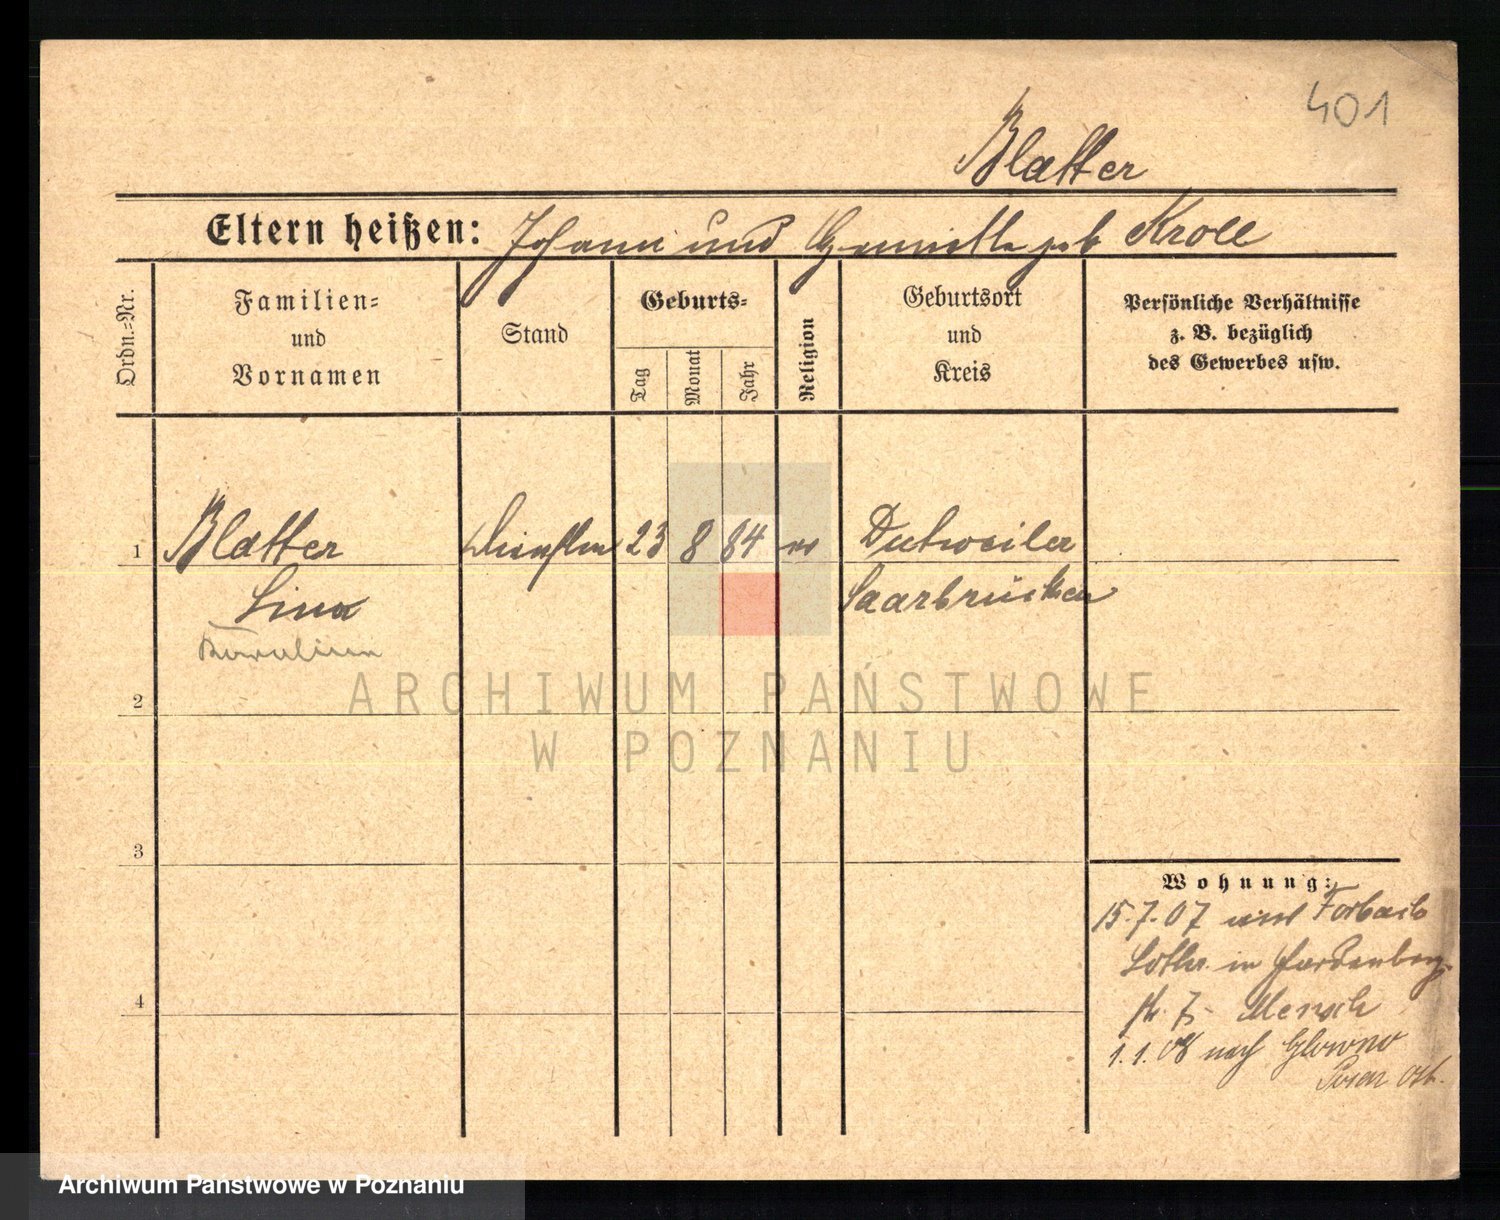 401
Blatter
Eltern heißen: Johann und Henriette geb Kroll
Ordn.=Nr.
Familien=
und
Vornamen
Stand
Geburts=
Tag
Monat
Jahr
Religion
Geburtsort
und
Kreis
Persönliche Verhältnisse
z. B. bezüglich
des Gewerbes usw.
1
Blatter
Dienstm
23
8
84
ev
Dutweiler
Lina
Saarbrücken
Karoline
2
3
4
Wohnung:
15.7.07 aus Forbach
Lothr. in Hardenberg
str. 7 Mensch
1.1.08 nach Glowno
Posen Ost.
ARCHIWUM PAŃSTWOWE
W POZNANIU
Archiwum Państwowe w Poznaniu